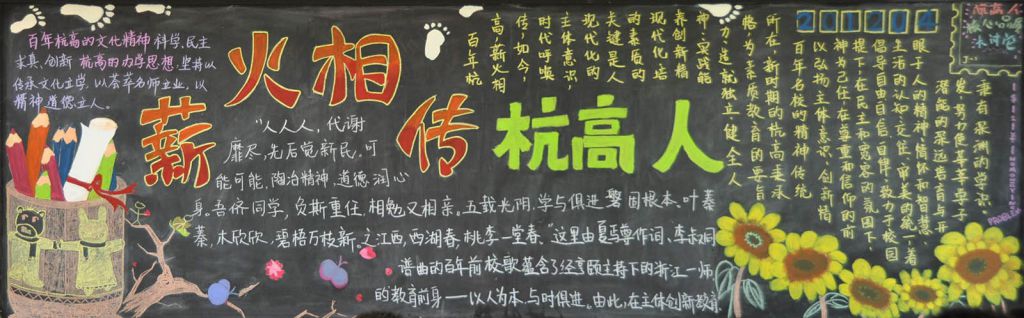 百年杭高的文化精神 科学、民主
求真、创新 杭高的办学思想、坚持以
传承文化立学，以荟萃名师立业，以
精神、道德立人。
薪火相传 杭高人
“人人人，代谢
靡尽，先后觉新民。可
能可能，陶冶精神、道德润心
身。吾侪同学，负斯重任，相勉又相亲。五载光阴，学与俱进，磐固根本、叶蓁
蓁，木欣欣，碧梧万枝新。之江西，西湖春，桃李一堂春。”这里由夏丏尊作词、李叔同
谱曲的百年前校歌蕴含了经亨颐主持下的浙江一师
的教育前身——以人为本、与时俱进。由此，在主体创新教育
百年杭
高，薪火相
传，如今，
时代呼唤
主体意识，
现代化的
关键是人
的素质的
现代化，培
养创新精
神、实践能
力，造就独立健全人
格，为素质教育的要旨
所在，新时期的杭高秉承
百年名校的精神传统，
以弘扬主体意识、创新精
神为己任，在尊重和信仰的前
提下，在民主和宽容的氛围下，
倡导自由、自信、自律，致力于校园
生活的认知、交往、审美的统一，着
眼于人的精神、情感和智慧
潜能的深远教育与开
发，努力使莘莘学子
兼有渊渊的学识
201204